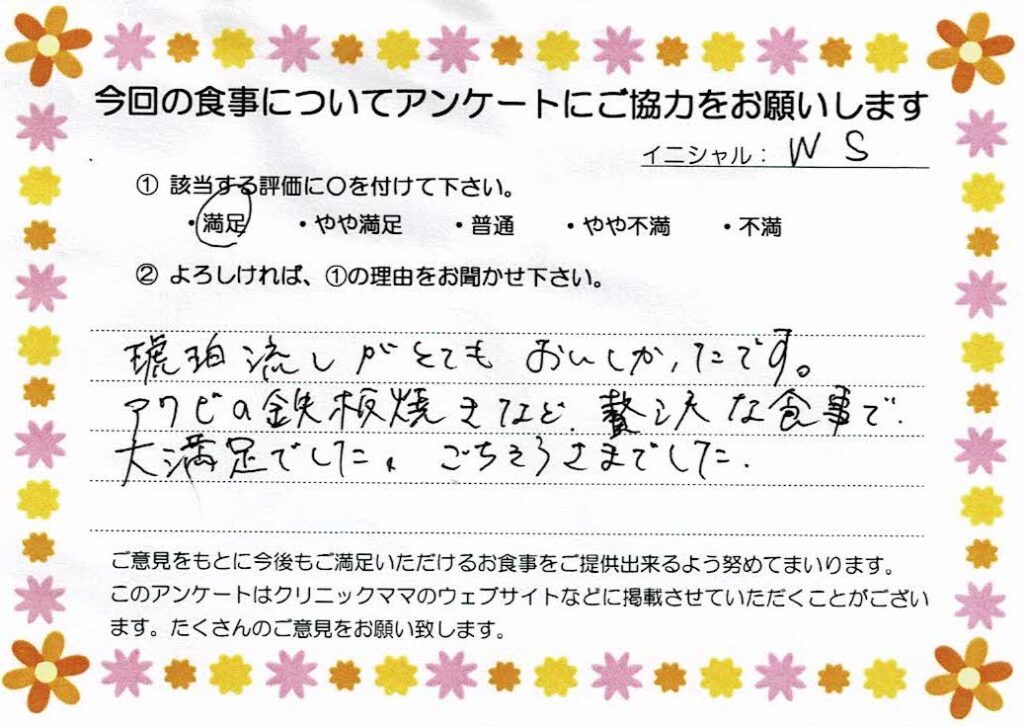 今回の食事についてアンケートにご協力をお願いします
イニシャル： W S
① 該当する評価に〇を付けて下さい。
・満足 ・やや満足 ・普通 ・やや不満 ・不満
② よろしければ、①の理由をお聞かせ下さい。
琥珀流しがとても おいしかったです。
アワビの鉄板焼きなど、贅沢な食事で
大満足でした。 ごちそうさまでした.
ご意見をもとに今後もご満足いただけるお食事をご提供出来るよう努めてまいります。
このアンケートはクリニックママのウェブサイトなどに掲載させていただくことがござい
ます。たくさんのご意見をお願い致します。